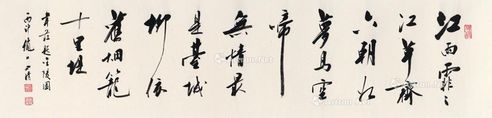 江雨霏〻
江草齊
六朝如
夢鳥空
啼
無情最
是臺城
柳依
舊烟籠
十里堤
韋莊題金陵圖